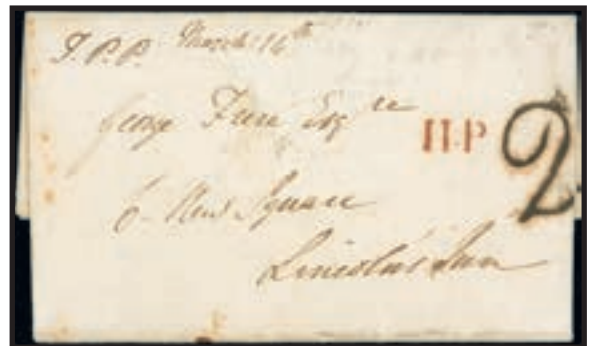 T.P.P. March 14th
George Frere Esqre
II.P 2
6 New Square
Lincoln's Inn